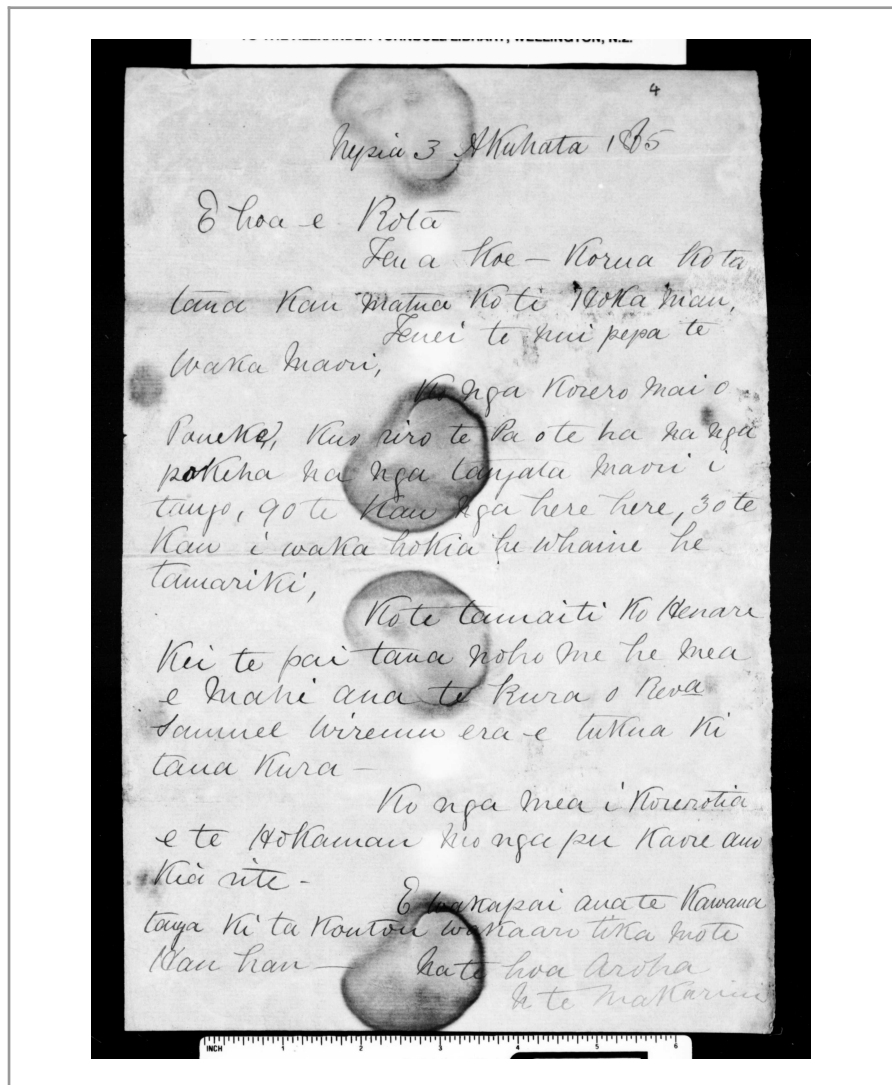 TO THE ALEXANDER TURNBULL LIBRARY, WELLINGTON, N.Z.
4
Nepia 3 Akuhata 1865
E hoa e Rota
Tena Koe – Korua Ko ta
taua Kau matua Ko ti Hoka mau,
Tenei te nui pepa te
Waka Maori,
Ko nga Korero mai o
Poneke, Kuo riro te Pa o te ha na nga
pakeha na nga tangata maori i
tango, 90 te Kau nga here here, 30 te
Kau i waka hokia he whaine he
tamariki,
Ko te tamaiti Ko Henare
Kei te pai tana noho me he mea
e mahi ana te Kura o Reva
Samuel Wiremu era e tukua Ki
tana Kura –
Ko nga mea i Korerotia
e te Hokamau mo nga pu Kaore ano
Kia rite –
E wakapai ana te Kawana
tanga Ki ta Koutou wakaaro tika mo te
Hau hau – Na te hoa Aroha
Na te Makarini
INCH 1 2 3 4 5 6